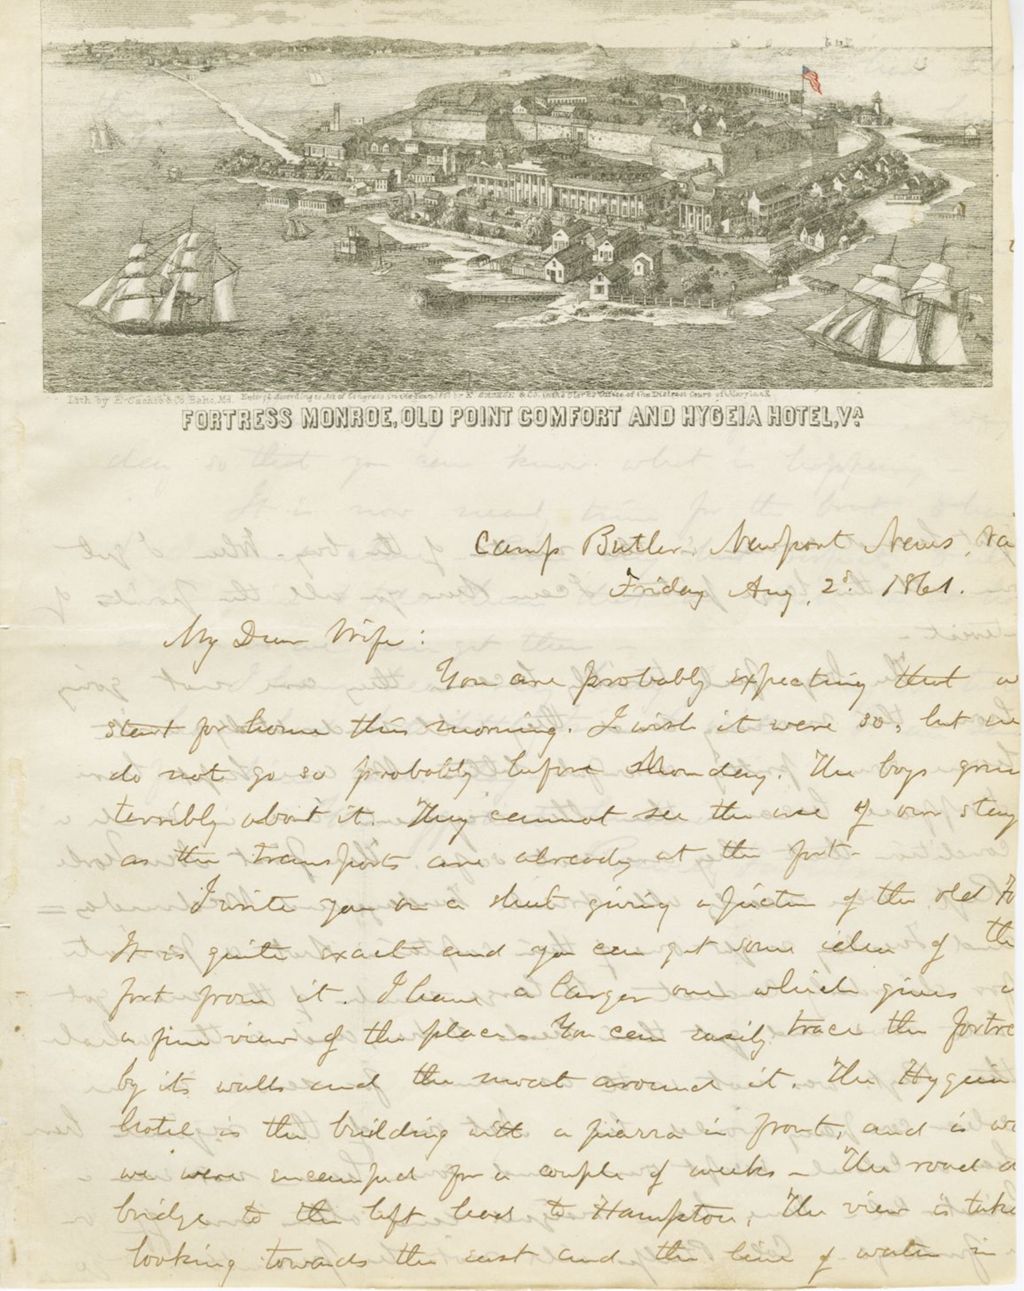 Lith. by E. Sachse & Co. Balto. Md. Entered according to Act of Congress in the Year 1861 by E. SACHSE & Co. in the Clerks Office of the District Court of Maryland
FORTRESS MONROE, OLD POINT COMFORT AND HYGEIA HOTEL, VA
day so that you can know what is happening —
It is now near time for the boat
Camp Butler, Newport News, Va
Friday Aug. 2d. 1861.
My Dear Wife:
You are probably expecting that w
start for home this morning. I wish it were so, but we
do not go so probably before Monday. The boys grow
terribly about it. They cannot see the use of our stay
as the transports are already at the fort—
I write you on a sheet giving a picture of the old Fo
It is quite exact and you can get some idea of the
fort from it. I have a larger one which gives
a fine view of the place. You can easily trace the fortre
by its walls and the moat around it. The Hygeia
hotel is the building with a piazza in front, and is
we were encamped for a couple of weeks — The road a
bridge to the left lead to Hampton. The view is take
looking towards the east and the line of water in